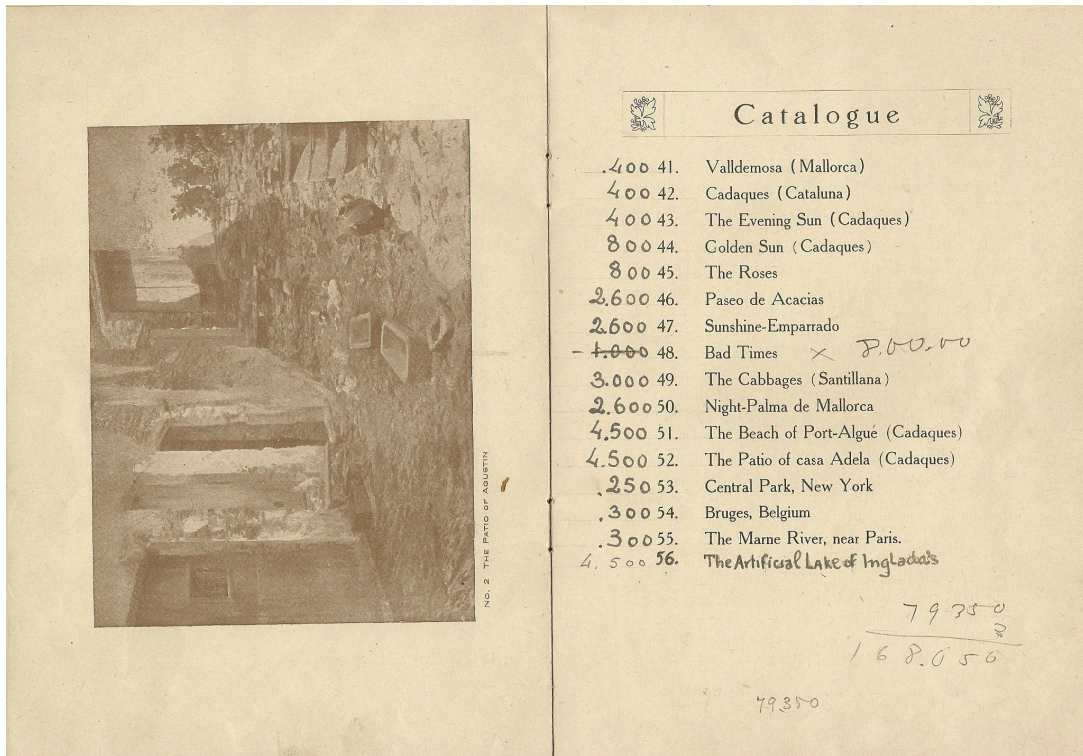 No. 2 THE PATIO OF AGUSTIN
Catalogue
.400 41. Valldemosa (Mallorca)
400 42. Cadaques (Cataluna)
400 43. The Evening Sun (Cadaques)
800 44. Golden Sun (Cadaques)
800 45. The Roses
2.600 46. Paseo de Acacias
2.600 47. Sunshine-Emparrado
- 1.000 48. Bad Times x 8.00.00
3.000 49. The Cabbages (Santillana)
2.600 50. Night-Palma de Mallorca
4.500 51. The Beach of Port-Algué (Cadaques)
4.500 52. The Patio of casa Adela (Cadaques)
.250 53. Central Park, New York
.300 54. Bruges, Belgium
.300 55. The Marne River, near Paris.
4.500 56. The Artificial Lake of Inglada's
79350
168.050
79350